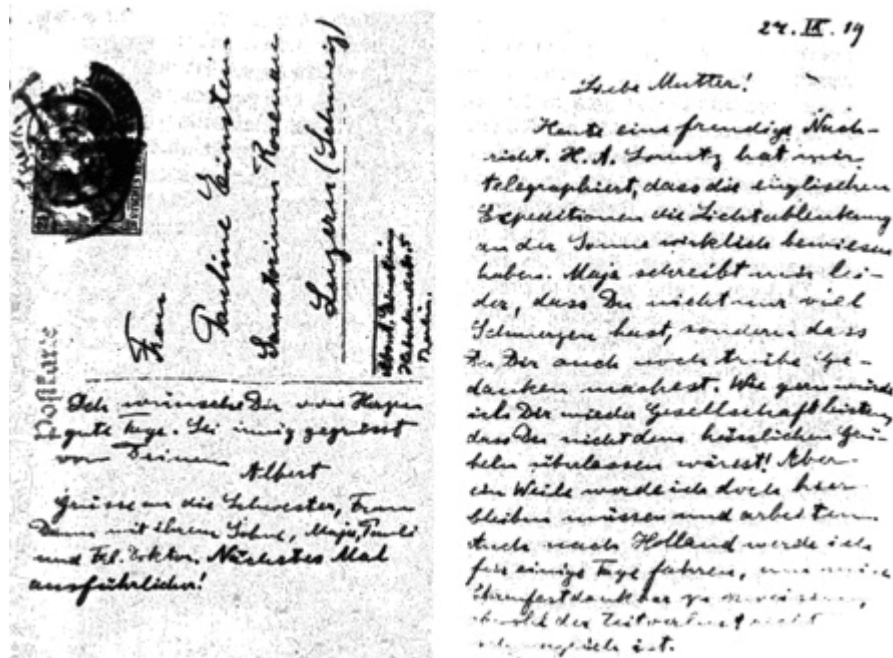 Postkarte
Frau
Pauline Einstein
Sanatorium Rosenau
Luzern (Schweiz)
Albert Einstein
Haberlandstr. 5
Berlin.
Ich wünsche Dir von Herzen
gute Tage. Sei innig gegrüsst
von Deinem
Albert
Grüsse an die Schwester, Frau
mit ihrem Sohne, Maja, Pauli
und Frl. Doktor. Nächstes Mal
ausführlicher!
27. IX. 19
Liebe Mutter!
Heute eine freudige Nach-
richt. H. A. Lorentz hat mir
telegraphiert, dass die englischen
Expeditionen die Lichtablenkung
an der Sonne wirklich bewiesen
haben. Maja schreibt mir lei-
der, dass Du nicht nur viel
Schmerzen hast, sondern dass
Du Dir auch noch trübe Ge-
danken machest. Wie gern würde
ich Dir wieder Gesellschaft leisten,
dass Du nicht dem hässlichen Grü-
beln überlassen wärest! Aber
ein Weile werde ich doch hier
bleiben müssen und arbeiten.
Auch nach Holland werde ich
für einige Tage fahren, um mich
Ehrenfest dankbar zu erweisen,
obwohl der Zeitverlust recht
ist.